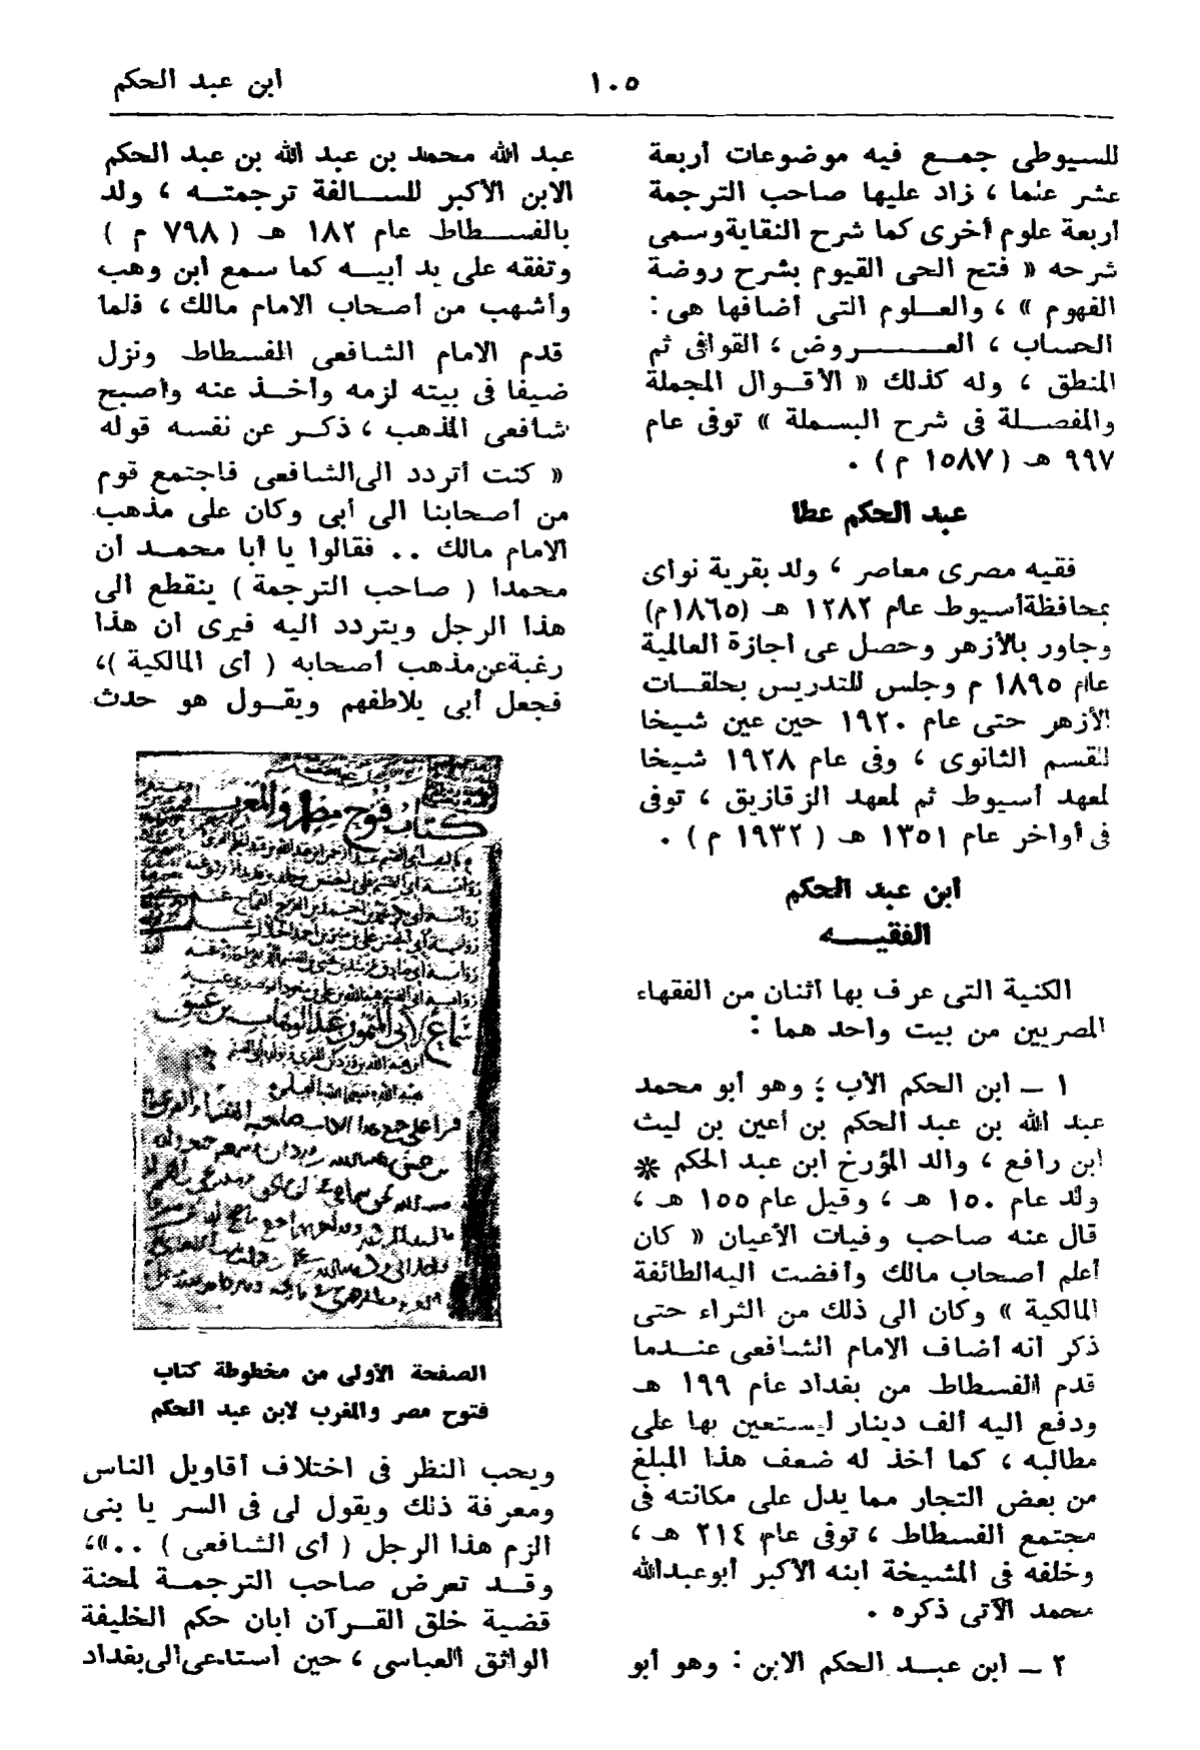 ابن عبد الحكم
١٠٥
للسيوطى جمع فيه موضوعات أربعة
عشر علما ، زاد عليها صاحب الترجمة
أربعة علوم أخرى كما شرح النقاية وسمى
شرحه « فتح الحى القيوم بشرح روضة
الفهوم » ، والعلوم التى أضافها هى :
الحساب ، العروض ، القوافى ثم
المنطق ، وله كذلك « الأقوال المجملة
والمفصلة فى شرح البسملة » توفى عام
٩٩٧ هـ ( ١٥٨٧ م ) .
عبد الحكم عطا
فقيه مصرى معاصر ، ولد بقرية نواى
بمحافظة أسيوط عام ١٢٨٢ هـ (١٨٦٥م)
وجاور بالأزهر وحصل عى اجازة العالمية
عام ١٨٩٥ م وجلس للتدريس بحلقات
الأزهر حتى عام ١٩٢٠ حين عين شيخا
للقسم الثانوى ، وفى عام ١٩٢٨ شيخا
لمعهد أسيوط ثم لمعهد الزقازيق ، توفى
فى أواخر عام ١٣٥١ هـ ( ١٩٣٢ م ) .
ابن عبد الحكم
الفقيه
الكنية التى عرف بها اثنان من الفقهاء
المصريين من بيت واحد هما :
١ ــ ابن الحكم الأب ؛ وهو أبو محمد
عبد الله بن عبد الحكم بن أعين بن ليث
ابن رافع ، والد المؤرخ ابن عبد الحكم *
ولد عام ١٥٠ هـ ، وقيل عام ١٥٥ هـ ،
قال عنه صاحب وفيات الأعيان « كان
أعلم أصحاب مالك وأفضت اليه الطائفة
المالكية » وكان الى ذلك من الثراء حتى
ذكر أنه أضاف الامام الشافعى عندما
قدم الفسطاط من بغداد عام ١٩٩ هـ
ودفع اليه ألف دينار ليستعين بها على
مطالبه ، كما أخذ له ضعف هذا المبلغ
من بعض التجار مما يدل على مكانته فى
مجتمع الفسطاط ، توفى عام ٢١٤ هـ ،
وخلفه فى المشيخة ابنه الأكبر أبو عبد الله
محمد الآتى ذكره .
٢ ــ ابن عبد الحكم الابن : وهو أبو
عبد الله محمد بن عبد الله بن عبد الحكم
الابن الأكبر للسالفة ترجمته ، ولد
بالفسطاط عام ١٨٢ هـ ( ٧٩٨ م )
وتفقه على يد أبيه كما سمع ابن وهب
وأشهب من أصحاب الامام مالك ، فلما
قدم الامام الشافعى الفسطاط ونزل
ضيفا فى بيته لزمه وأخذ عنه وأصبح
شافعى المذهب ، ذكر عن نفسه قوله
« كنت أتردد الى الشافعى فاجتمع قوم
من أصحابنا الى أبى وكان على مذهب
الامام مالك .. فقالوا يا أبا محمد أن
محمدا ( صاحب الترجمة ) ينقطع الى
هذا الرجل ويتردد اليه فيرى أن هذا
رغبة عن مذهب أصحابه ( أى المالكية )،
فجعل أبى يلاطفهم ويقول هو حدث
كتاب فتوح مصر والمغرب
الصفحة الأولى من مخطوطة كتاب
فتوح مصر والمغرب لابن عبد الحكم
ويحب النظر فى اختلاف أقاويل الناس
ومعرفة ذلك ويقول لى فى السر يا بنى
الزم هذا الرجل ( أى الشافعى ) ..»،
وقد تعرض صاحب الترجمة لمحنة
قضية خلق القرآن ابان حكم الخليفة
الواثق العباسى ، حين أستدعى الى بغداد